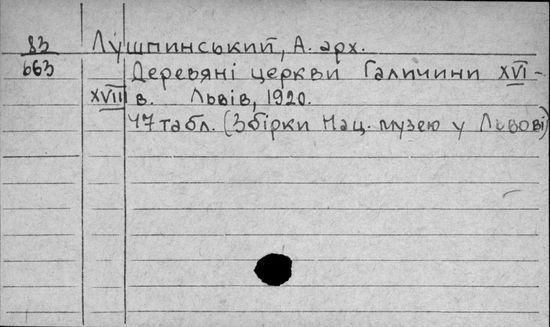 83 Лушпинський, А. арх.
663 Деревяні церкви Галичини XVI-
XVIII в. Львів, 1920.
47 табл. (Збірки Нац. музею у Львові)